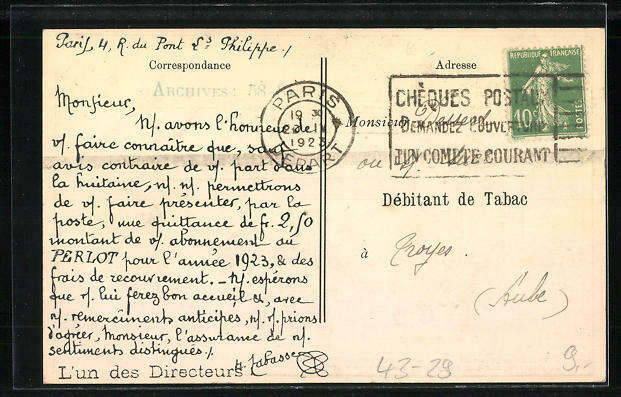 Paris 4, R. du Pont Ls Philippe./
Correspondance
Adresse
ARCHIVES: 58
Monsieur,
N/. avons l'honneur de
v/. faire connaître que, sauf
avis contraire de v/. part dans
la huitaine, n/. n/. permettrons
de v/. faire présenter, par la
poste, une quittance de fr. 2,50
montant de v/. abonnement au
PERLOT pour l'année 1923, & des
frais de recouvrement. – N/. espérons
que v/. lui ferez bon accueil &, avec
n/. remerciments anticipés, n/. v/. prions
d'agréer, Monsieur, l'assurance de n/.
sentiments distingués./.
L'un des Directeurs
PARIS
1923
DEPART
REPUBLIQUE FRANÇAISE
10c
POSTES
CHÈQUES POSTAUX
DEMANDEZ L'OUVERTURE
D'UN COMPTE COURANT
Monsieur
ou
Débitant de Tabac
à Troyes.
(Aube)
43-29
9,-